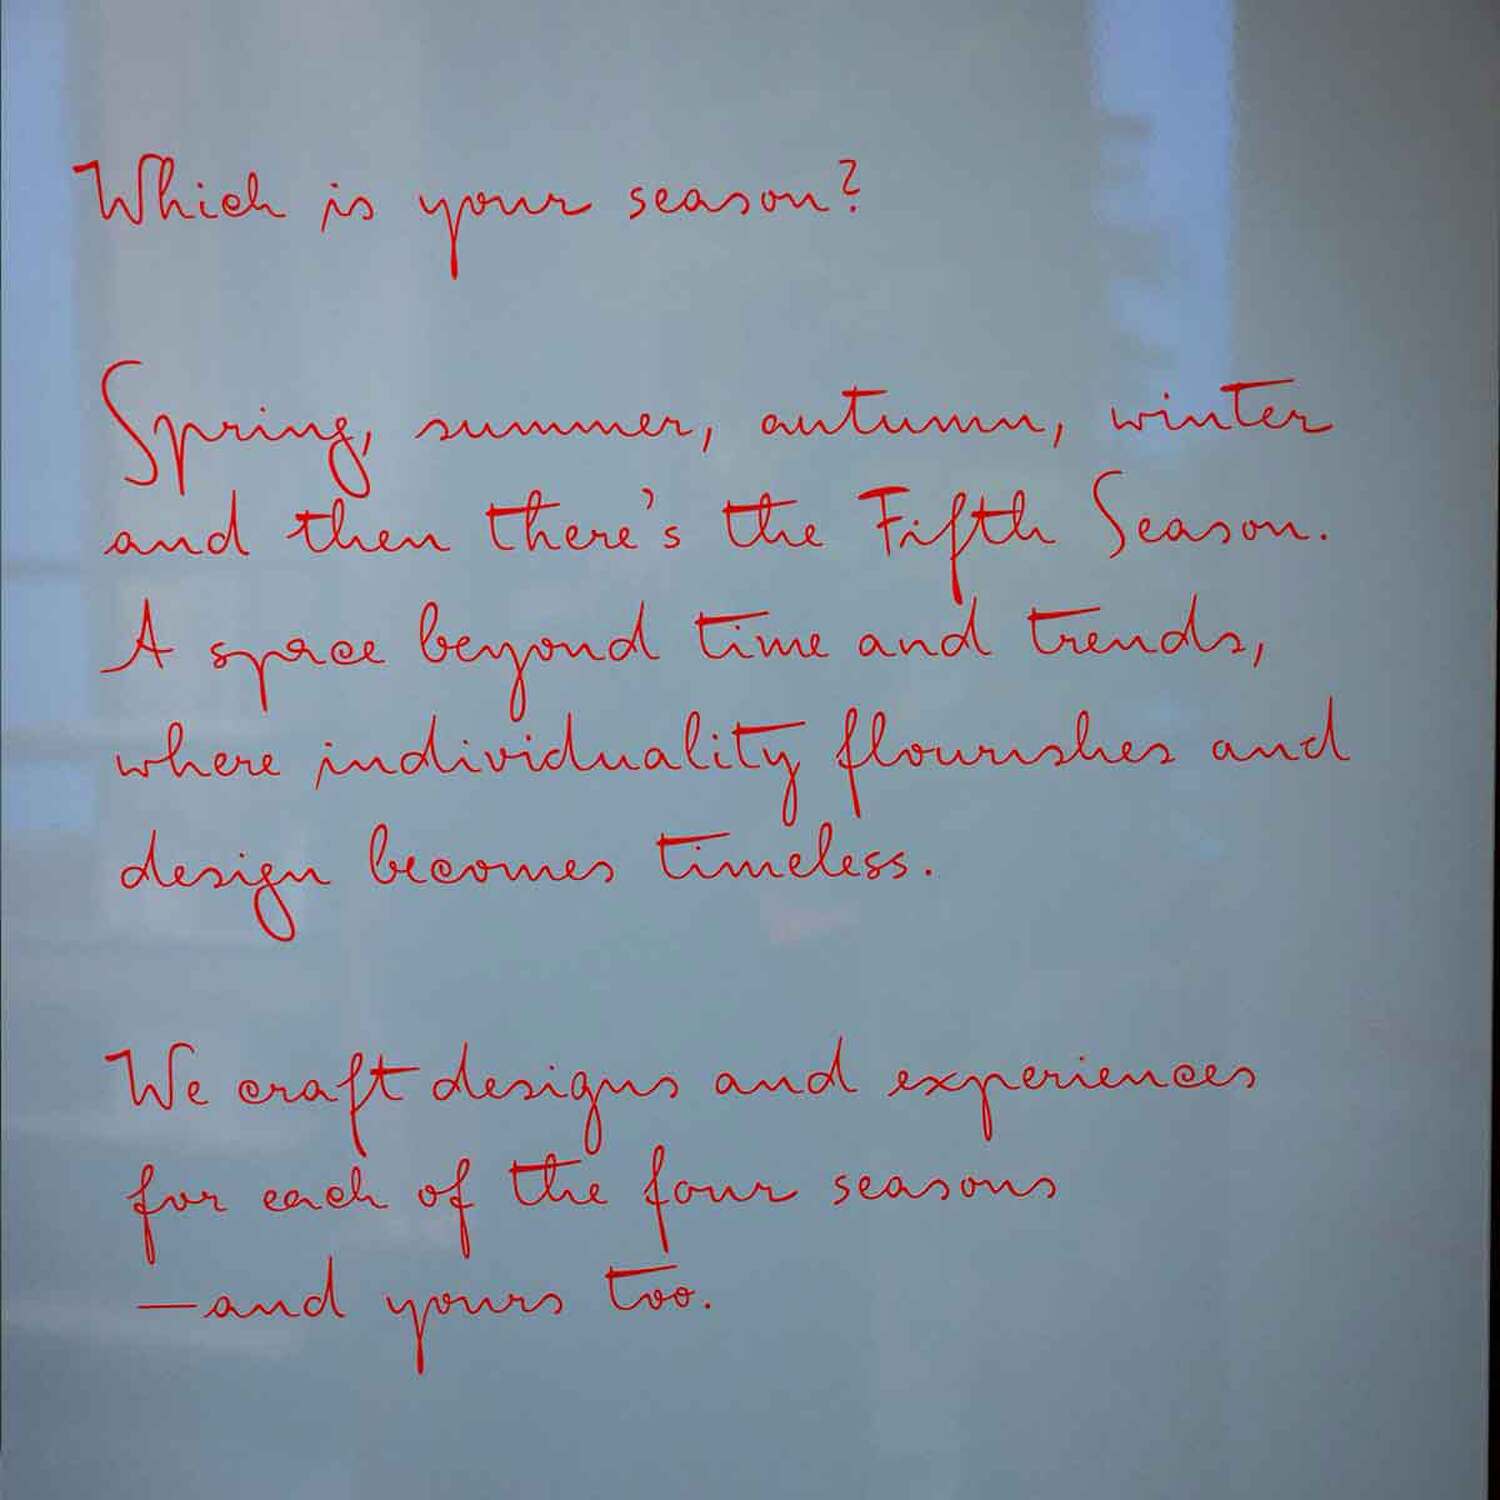 Which is your season?
Spring, summer, autumn, winter
and then there's the Fifth Season.
A space beyond time and trends,
where individuality flourishes and
design becomes timeless.
We craft designs and experiences
for each of the four seasons
—and yours too.